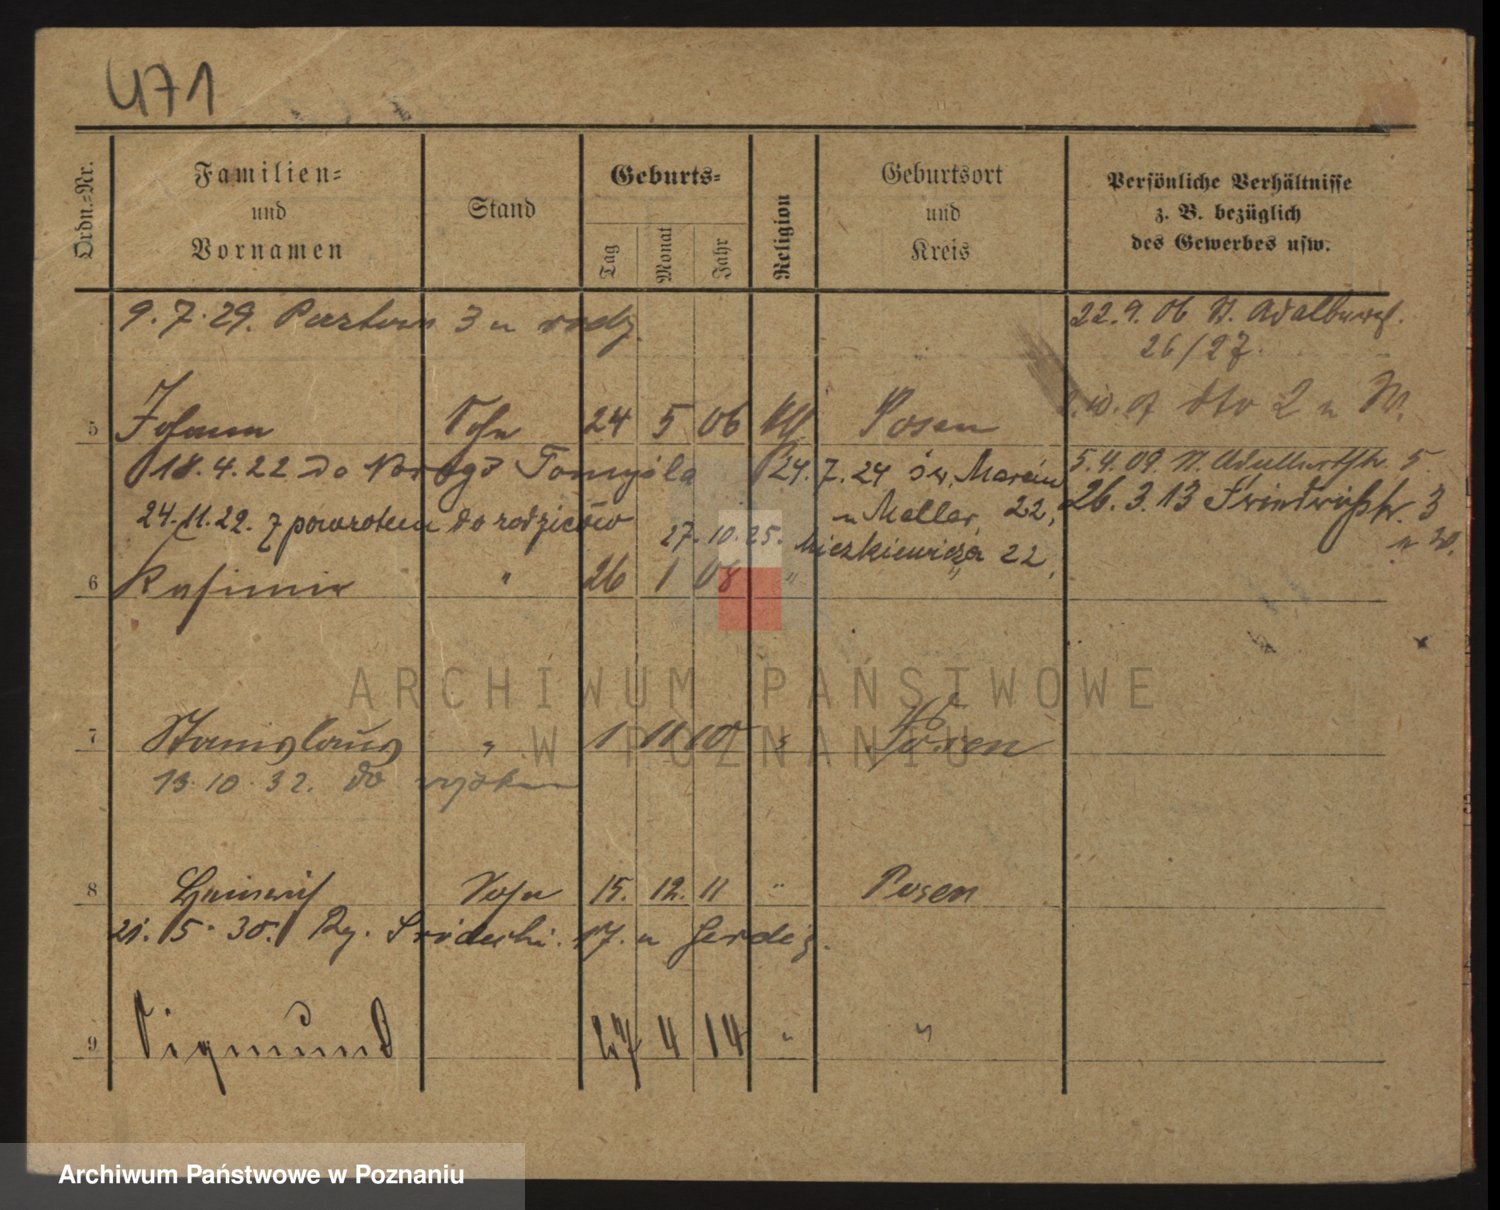 471
Ordn.-Nr.
Familien-
und
Vornamen
Stand
Geburts-
Tag
Monat
Jahr
Religion
Geburtsort
und
Kreis
Persönliche Verhältnisse
z. B. bezüglich
des Gewerbes usw.
9.7.29. 3 u rodz.
22.9.06 St. Adalbertst.
26/27
5 Johann Sohn 24 5 06 Posen
2 u W.
18.4.22 do Nowego Tomyśla
24.7.24 św. Marcin
5.4.09. St. Adalbertstr. 5.
24.11.22. z powrotem do rodziców
u Meller, 22,
26.3.13 Friedrichstr. 3
u W.
27.10.25. Mickiewicza 22,
6 Kasimir " 26 1 08 " "
7 Stanislaus " 1 11 10 " Posen
13.10.32. do
8 Heinrich Sohn 15. 12. 11 " Posen
21.5.30. Ry. 17. u
9 Sigmund 27 4 14 " "
ARCHIWUM PAŃSTWOWE
W POZNANIU
Archiwum Państwowe w Poznaniu